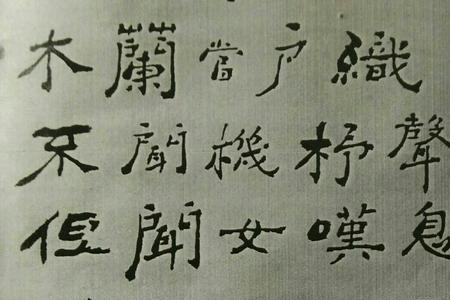 木蘭當户織
不聞機杼聲
但聞女嘆息